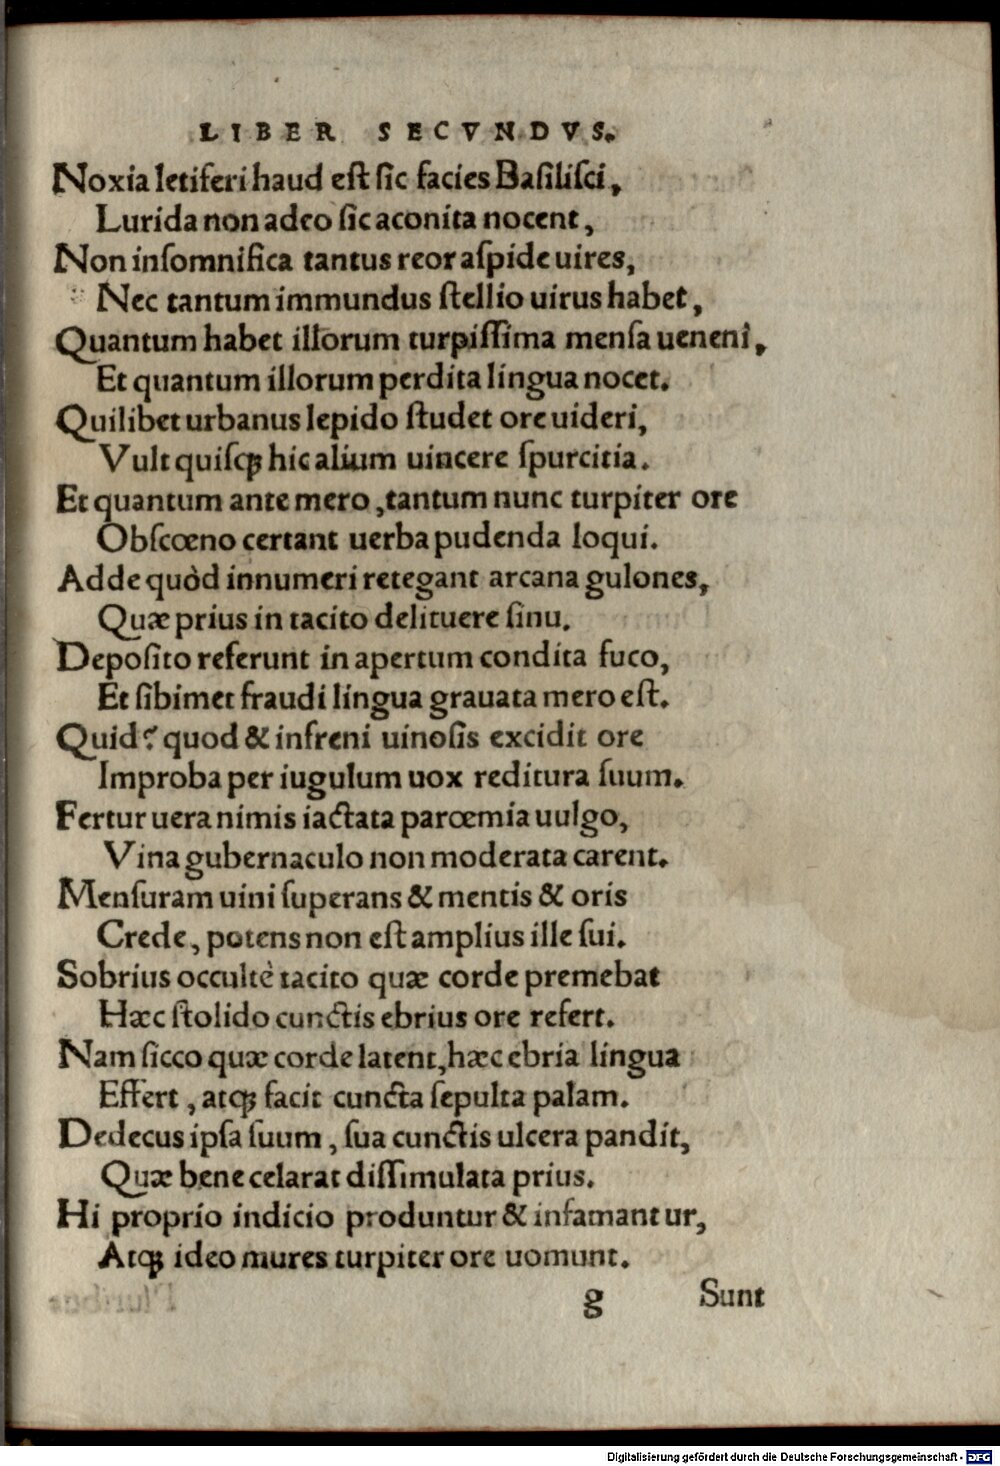 LIBER SECVNDVS.
Noxia letiferi haud eſt ſic facies Baſiliſci,
Lurida non adeo ſic aconita nocent,
Non inſomnifica tantus reor aſpide uires,
Nec tantum immundus ſtellio uirus habet,
Quantum habet illorum turpiſſima menſa ueneni,
Et quantum illorum perdita lingua nocet.
Quilibet urbanus lepido ſtudet ore uideri,
Vult quiſqꝫ hic alium uincere ſpurcitia.
Et quantum ante mero, tantum nunc turpiter ore
Obſcœno certant uerba pudenda loqui.
Adde quòd innumeri retegant arcana gulones,
Quæ prius in tacito delituere ſinu.
Depoſito referunt in apertum condita fuco,
Et ſibimet fraudi lingua grauata mero eſt.
Quid? quod & infreni uinoſis excidit ore
Improba per iugulum uox reditura ſuum.
Fertur uera nimis iactata parœmia uulgo,
Vina gubernaculo non moderata carent.
Menſuram uini ſuperans & mentis & oris
Crede, potens non eſt amplius ille ſui.
Sobrius occultè tacito quæ corde premebat
Hæc ſtolido cunctis ebrius ore refert.
Nam ſicco quæ corde latent, hæc ebria lingua
Effert, atqꝫ facit cuncta ſepulta palam.
Dedecus ipſa ſuum, ſua cunctis ulcera pandit,
Quæ bene celarat diſſimulata prius.
Hi proprio indicio produntur & infamantur,
Atqꝫ ideo mures turpiter ore uomunt.
g Sunt
Digitalisierung gefördert durch die Deutsche Forschungsgemeinschaft - DFG